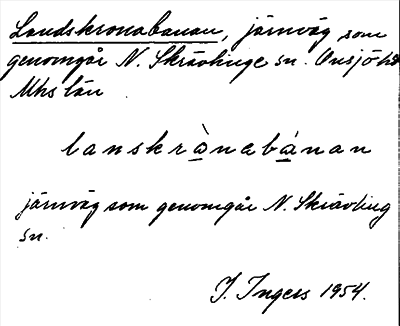 Landskronabanan, järnväg som
genomgår N. Skrävlinge sn. Onsjö hd
Mhs län
lanskrànabánan
järnväg som genomgår N. Skrävling
sn.
I. Ingers 1954.